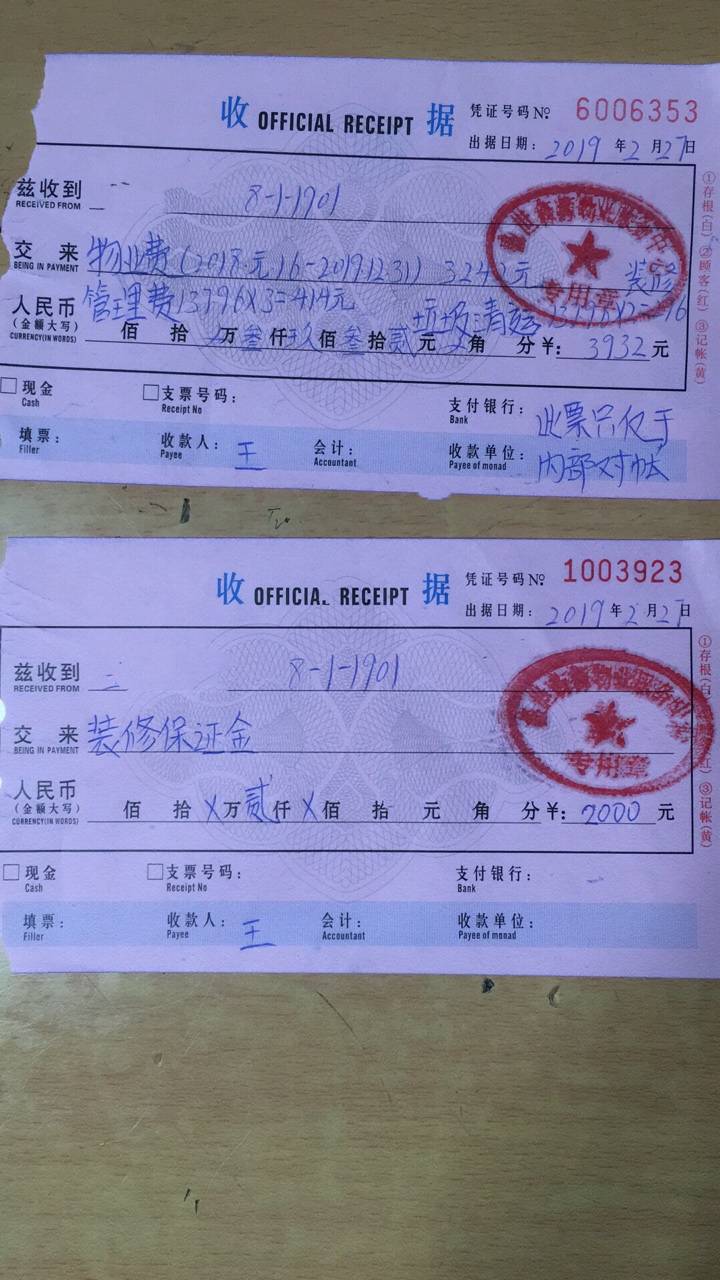 收 OFFICIAL RECEIPT 据
凭证号码No. 6006353
出据日期：2019年2月27日
兹收到 8-1-1901
RECEIVED FROM
交来 物业费(2018.元.16-2019.12.31) 3242元 装修
BEING IN PAYMENT
管理费137.96×3=414元 垃圾清运
人民币
(金额大写)
CURRENCY(IN WORDS)
佰 拾 万叁仟玖佰叁拾贰元 角 分￥：3932元
①存根(白)②顾客(红)③记帐(黄)
专用章
现金
Cash
支票号码：
Receipt No
支付银行：
Bank
此票只仅于
填票：
Filler
收款人：王
Payee
会计：
Accountant
收款单位：
Payee of monad
内部对帐
收 OFFICIA. RECEIPT 据
凭证号码No. 1003923
出据日期：2019年2月27日
兹收到 8-1-1901
RECEIVED FROM
交来 装修保证金
BEING IN PAYMENT
人民币
(金额大写)
CURRENCY(IN WORDS)
佰 拾X万贰仟X佰 拾 元 角 分￥：2000元
①存根(白) 红)③记帐(黄)
专用章
现金
Cash
支票号码：
Receipt No
支付银行：
Bank
填票：
Filler
收款人：王
Payee
会计：
Accountant
收款单位：
Payee of monad